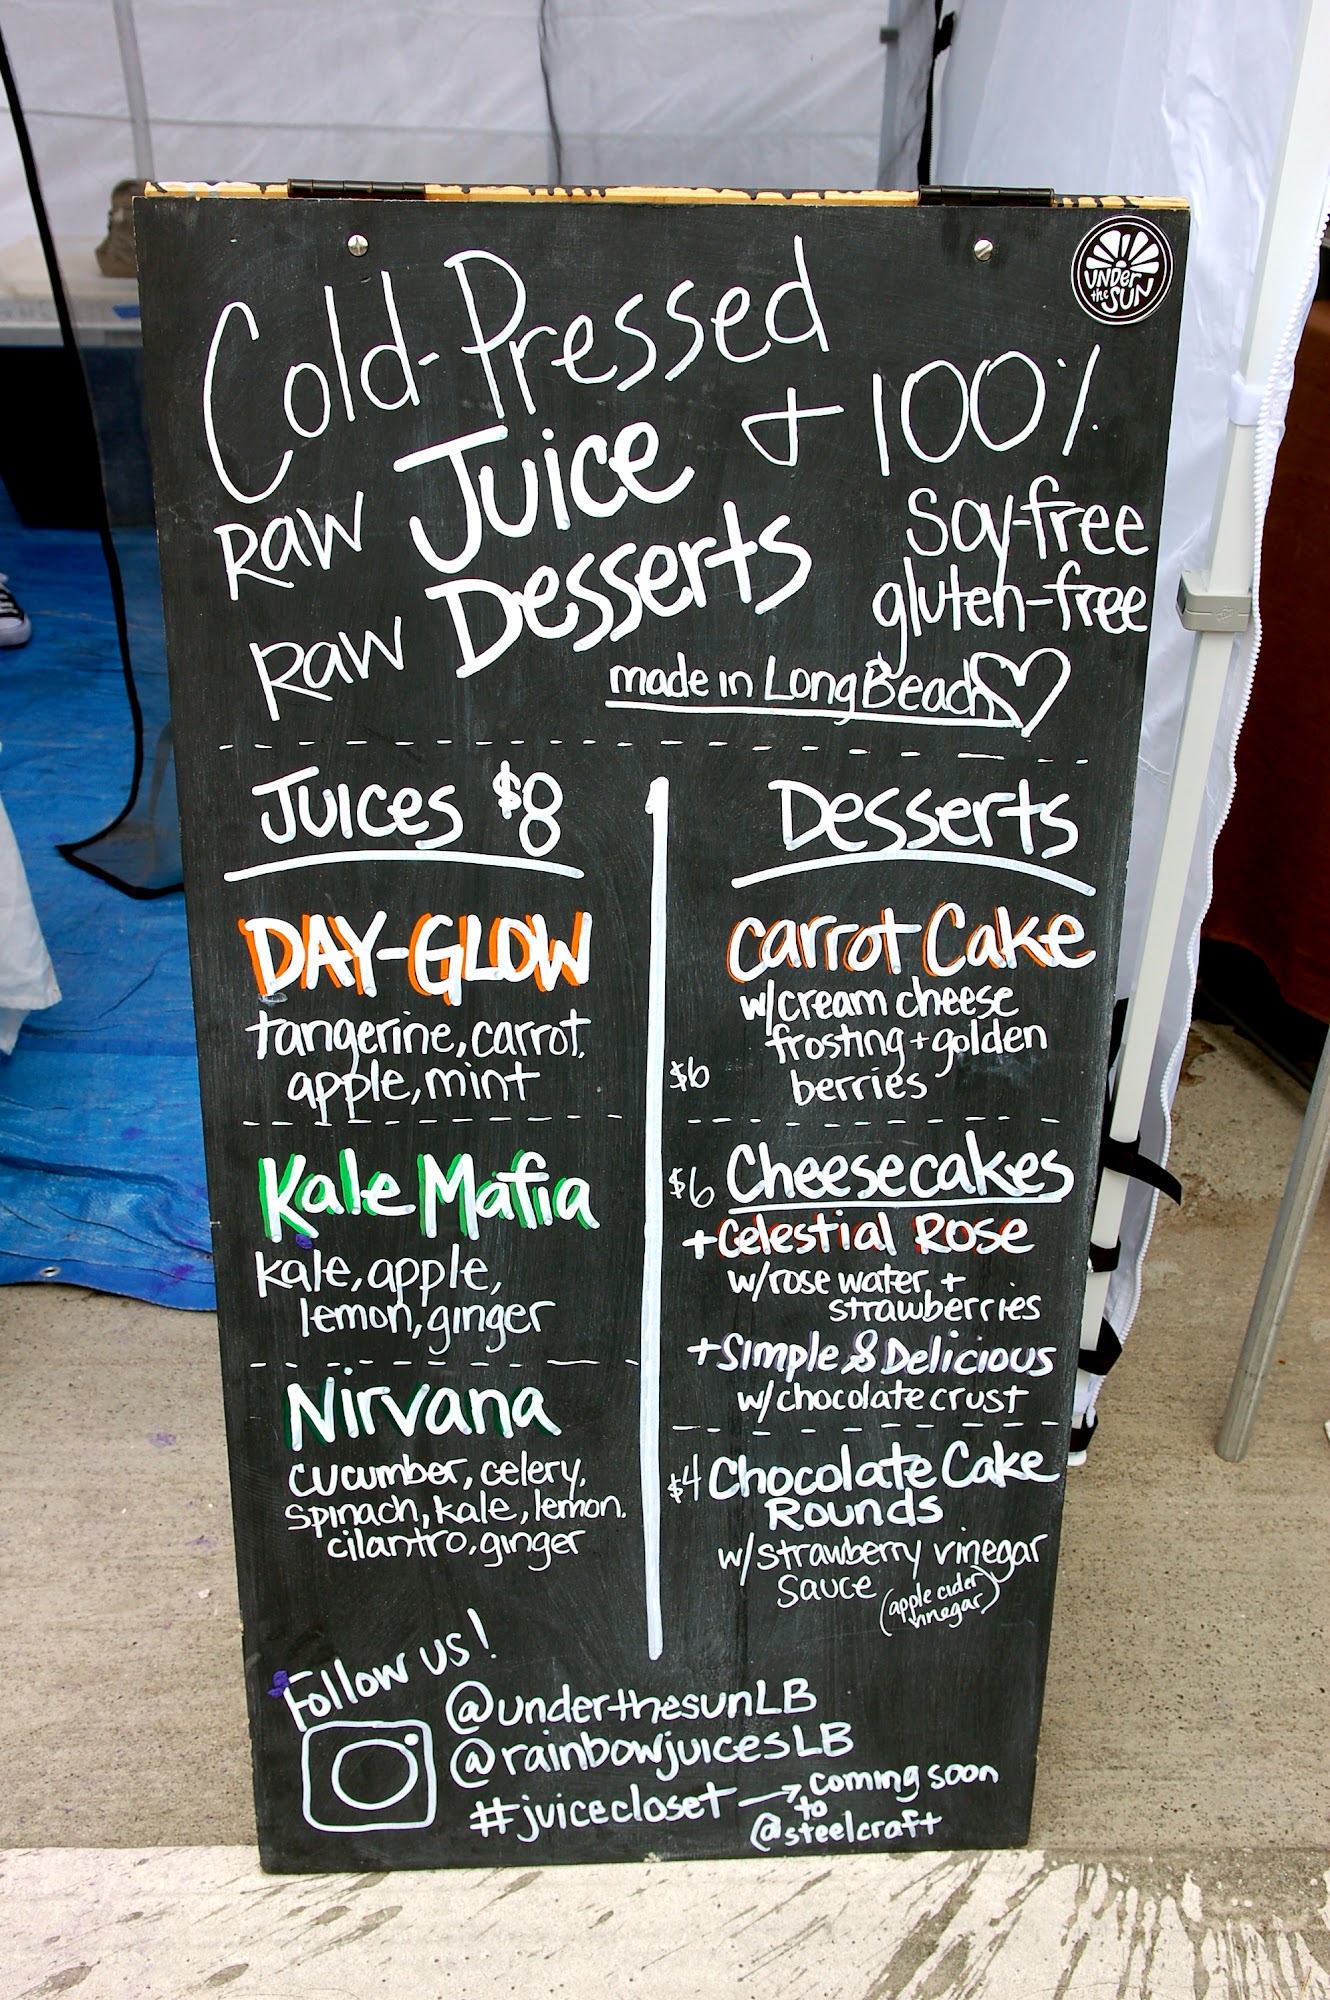 UNDER
the SUN
Cold-Pressed
RAW Juice + 100%
RAW Desserts
Soy-free
gluten-free
made in Long Beach
Juices $8
DAY-GLOW
tangerine, carrot,
apple, mint
Kale Mafia
kale, apple,
lemon, ginger
Nirvana
cucumber, celery,
spinach, kale, lemon,
cilantro, ginger
Desserts
Carrot Cake
w/cream cheese
frosting + golden
$6 berries
$6 Cheesecakes
+Celestial Rose
w/rose water +
strawberries
+Simple & Delicious
w/chocolate crust
$4 Chocolate Cake
Rounds
w/strawberry vinegar
sauce (apple cider
vinegar)
Follow us!
@underthesunLB
@rainbowjuicesLB
#juicecloset → coming soon
to
@steelcraft